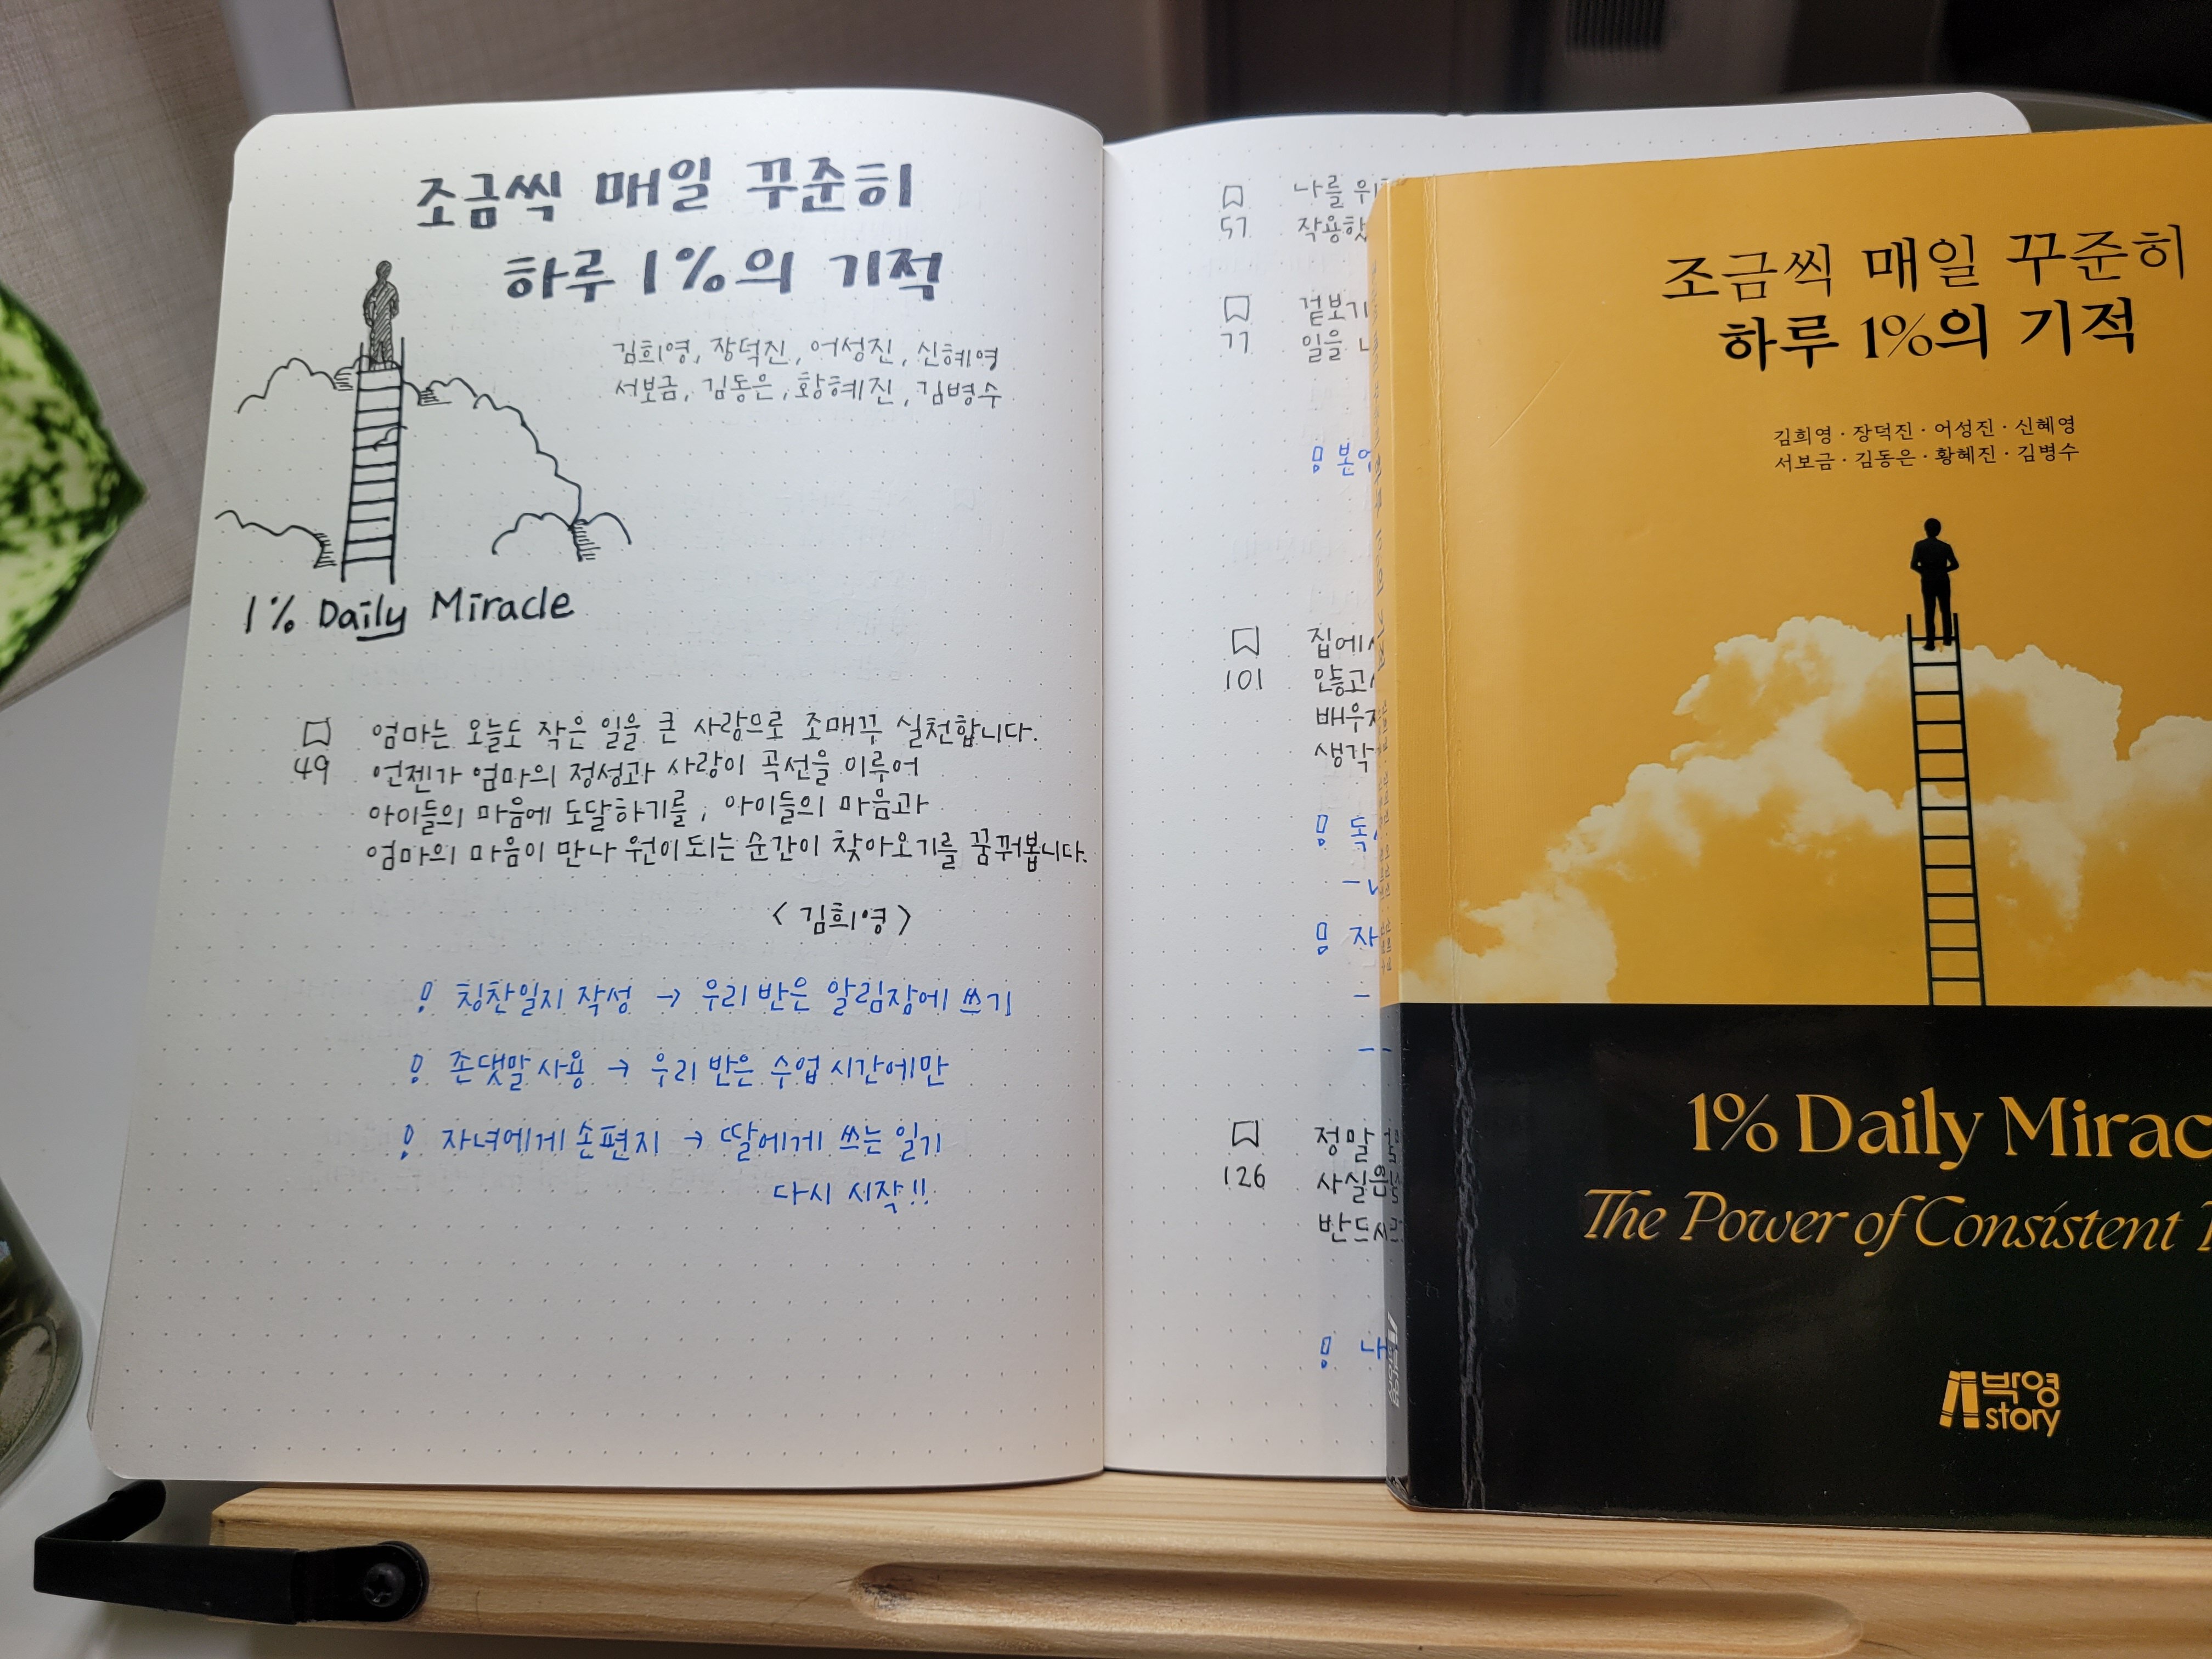 조금씩 매일 꾸준히
하루 1%의 기적
김희영, 장덕진, 어성진, 신혜영
서보금, 김동은, 황혜진, 김병수
1% Daily Miracle
엄마는 오늘도 작은 일을 큰 사랑으로 조매꾸 실천합니다.
49 언젠가 엄마의 정성과 사랑이 곡선을 이루어
아이들의 마음에 도달하기를, 아이들의 마음과
엄마의 마음이 만나 원이 되는 순간이 찾아오기를 꿈꿔봅니다.
<김희영>
! 칭찬일지 작성 → 우리 반은 알림장에 쓰기
! 존댓말 사용 → 우리 반은 수업 시간에만
! 자녀에게 손편지 → 딸에게 쓰는 일기
다시 시작!!
나를
57 작용했
겉보기
77 일을
! 본
집에
101
배우
생각
!
! 자
정말
126 사실은
반드시
! 나
조금씩 매일 꾸준히
하루 1%의 기적
김희영·장덕진·어성진·신혜영
서보금·김동은·황혜진·김병수
1% Daily Mirac
The Power of Consistent
박영
story